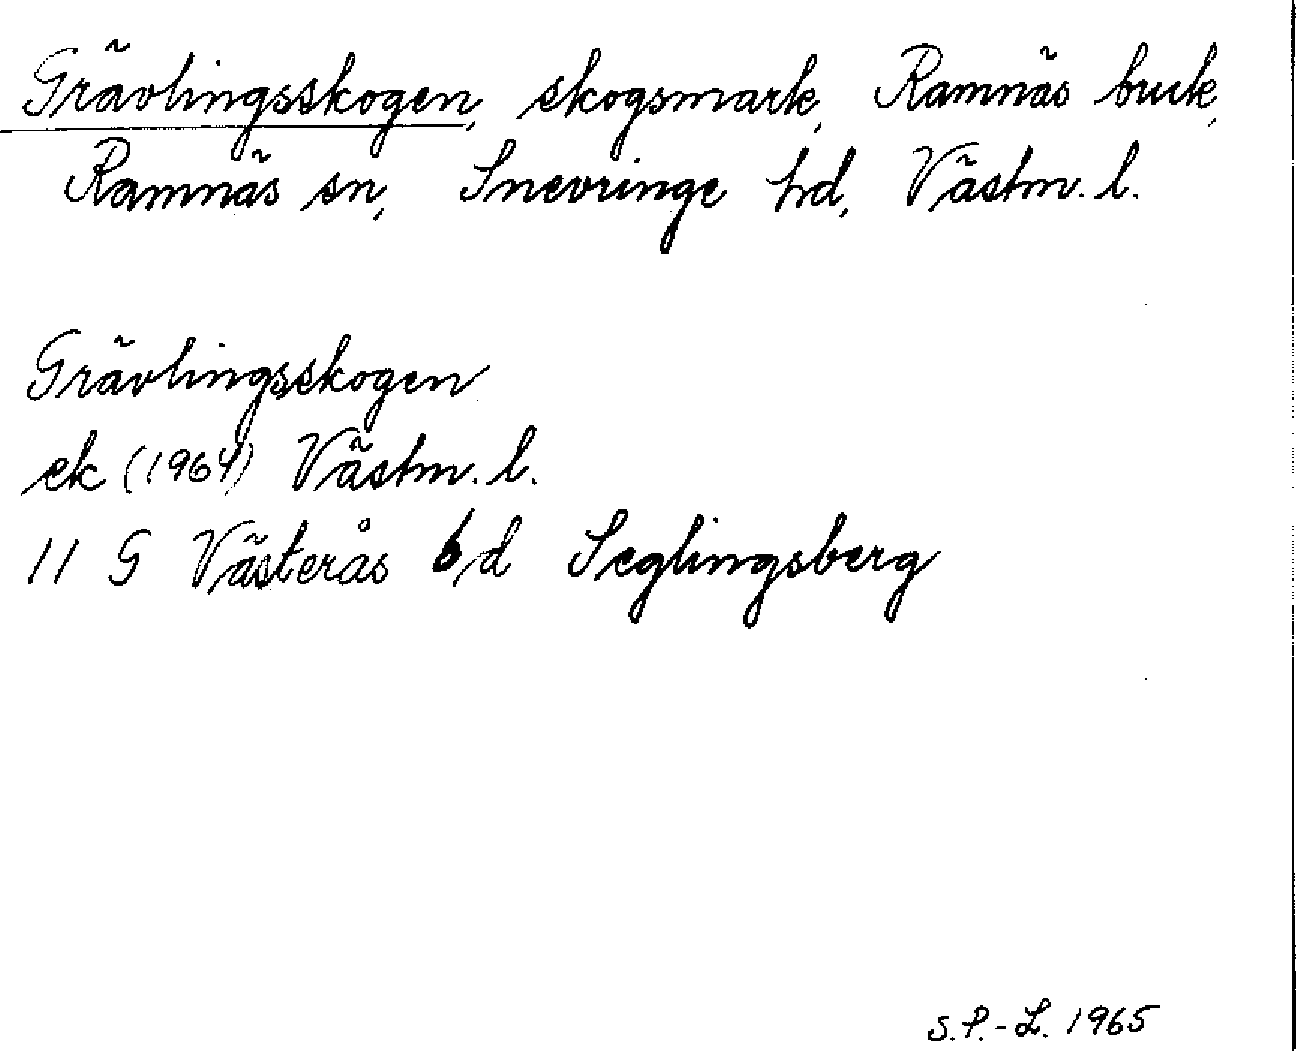 Grävlingsskogen, skogsmark, Ramnäs bruk,
Ramnäs sn, Snevringe hd, Västm. l.
Grävlingsskogen
ek (1964) Västm. l.
11 G Västerås 6/d Seglingsberg
S.P.-L. 1965